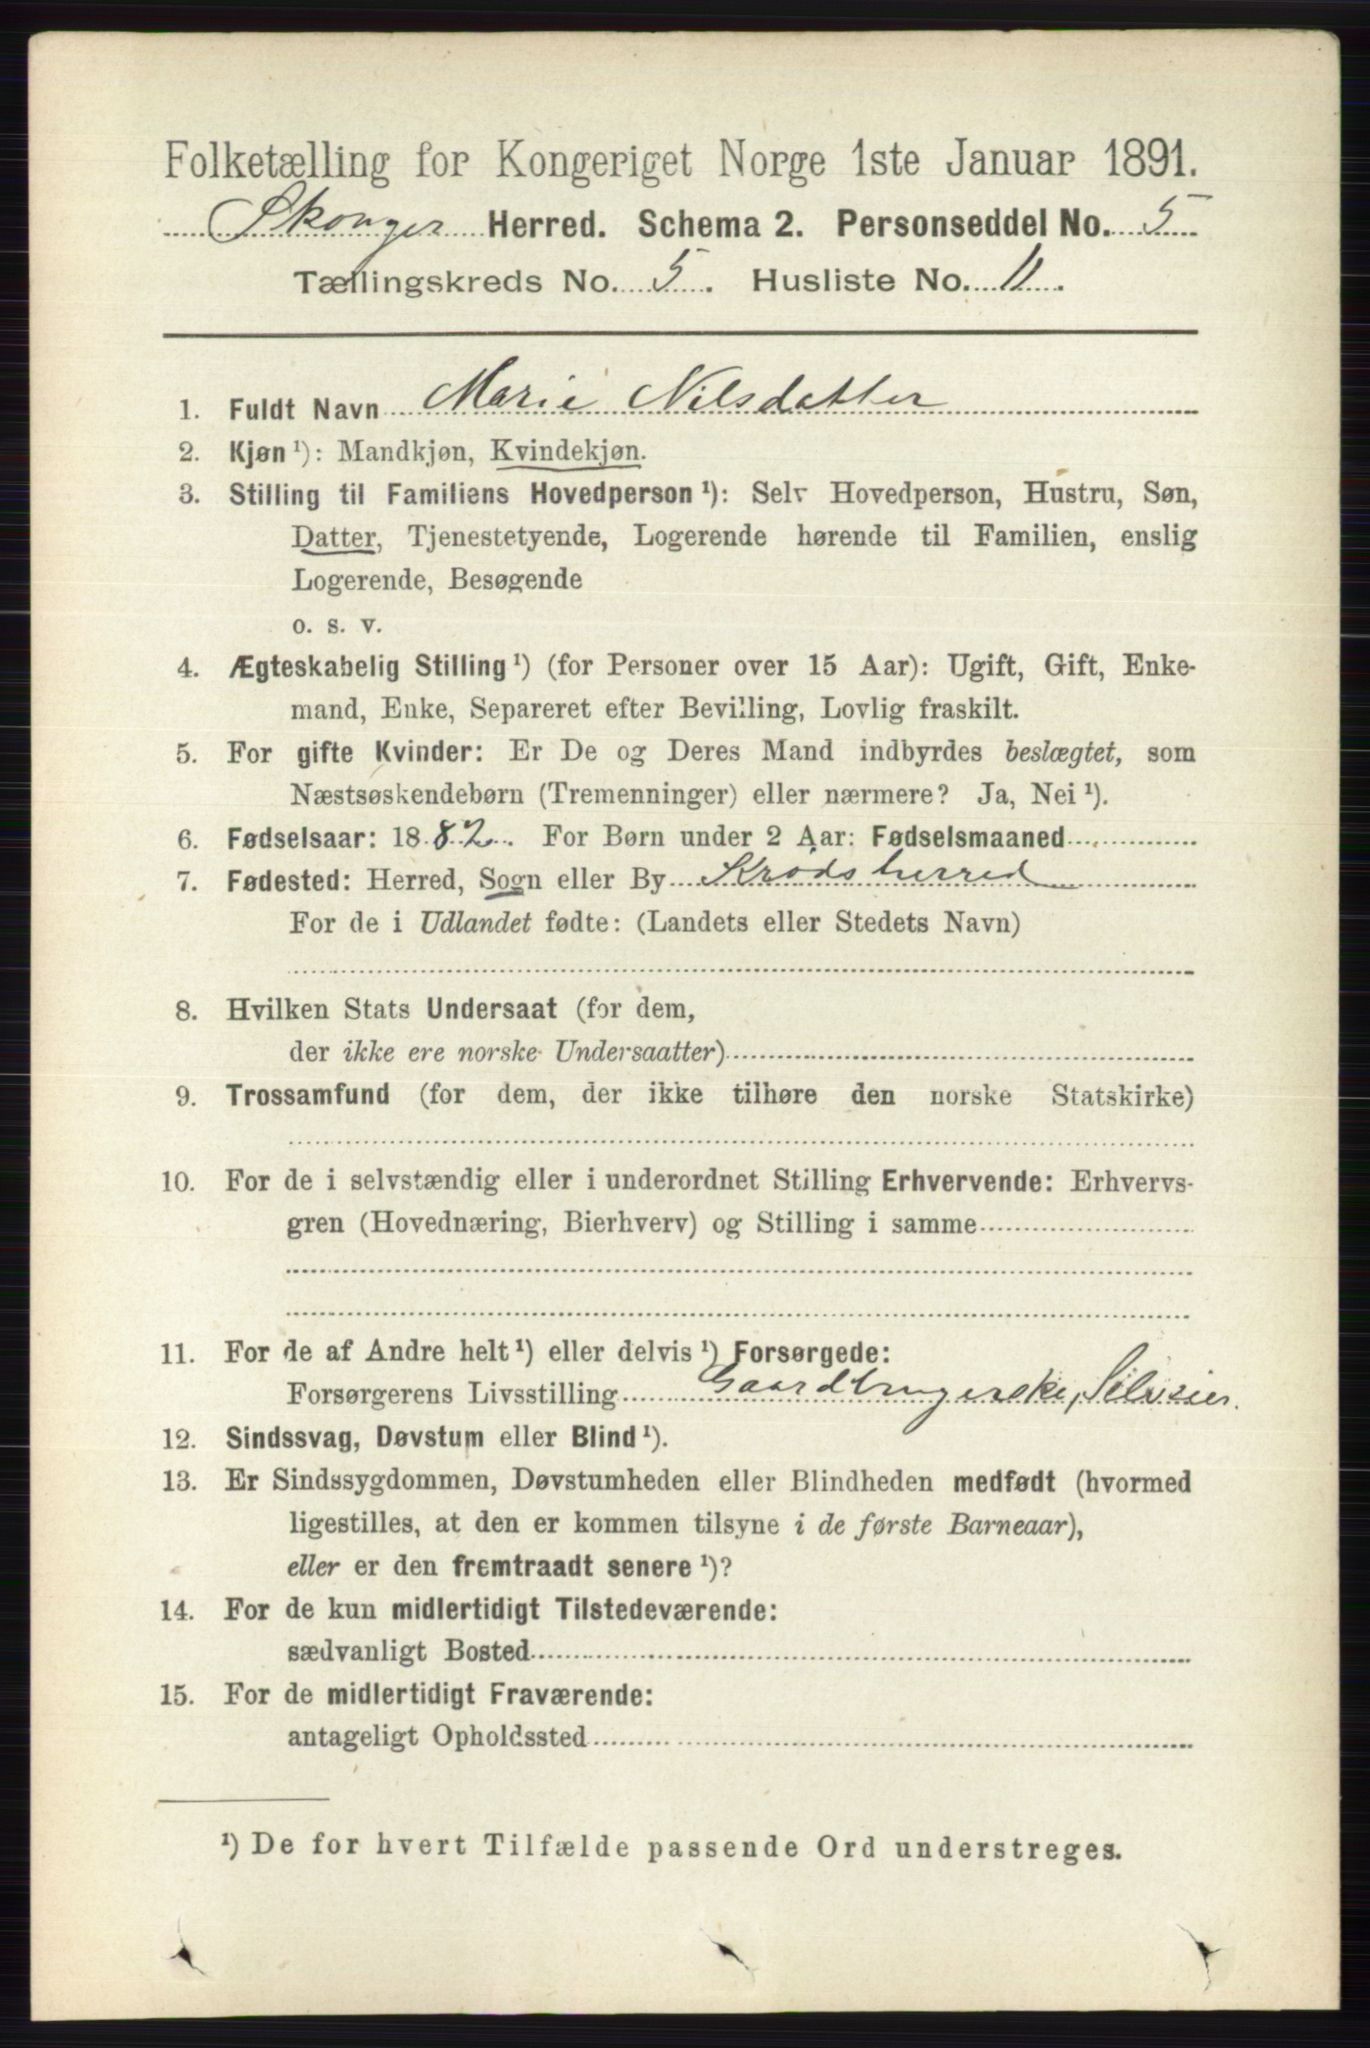 Folketælling for Kongeriget Norge 1ste Januar 1891.
Skouger Herred. Schema 2. Personseddel No. 5
Tællingskreds No. 5. Husliste No. 11.
1. Fuldt Navn Marie Nilsdatter
2. Kjøn ¹): Mandkjøn, Kvindekjøn.
3. Stilling til Familiens Hovedperson ¹): Selv Hovedperson, Hustru, Søn,
Datter, Tjenestetyende, Logerende hørende til Familien, enslig
Logerende, Besøgende
o. s. v.
4. Ægteskabelig Stilling ¹) (for Personer over 15 Aar): Ugift, Gift, Enke-
mand, Enke, Separeret efter Bevilling, Lovlig fraskilt.
5. For gifte Kvinder: Er De og Deres Mand indbyrdes beslægtet, som
Næstsøskendebørn (Tremenninger) eller nærmere? Ja, Nei ¹).
6. Fødselsaar: 1882. For Børn under 2 Aar: Fødselsmaaned
7. Fødested: Herred, Sogn eller By Krødsherred
For de i Udlandet fødte: (Landets eller Stedets Navn)
8. Hvilken Stats Undersaat (for dem,
der ikke ere norske Undersaatter)
9. Trossamfund (for dem, der ikke tilhøre den norske Statskirke)
10. For de i selvstændig eller i underordnet Stilling Erhvervende: Erhvervs-
gren (Hovednæring, Bierhverv) og Stilling i samme
11. For de af Andre helt ¹) eller delvis ¹) Forsørgede:
Forsørgerens Livsstilling Gaardbrugerske, Selveier.
12. Sindssvag, Døvstum eller Blind ¹).
13. Er Sindssygdommen, Døvstumheden eller Blindheden medfødt (hvormed
ligestilles, at den er kommen tilsyne i de første Barneaar),
eller er den fremtraadt senere ¹)?
14. For de kun midlertidigt Tilstedeværende:
sædvanligt Bosted
15. For de midlertidigt Fraværende:
antageligt Opholdssted
¹) De for hvert Tilfælde passende Ord understreges.